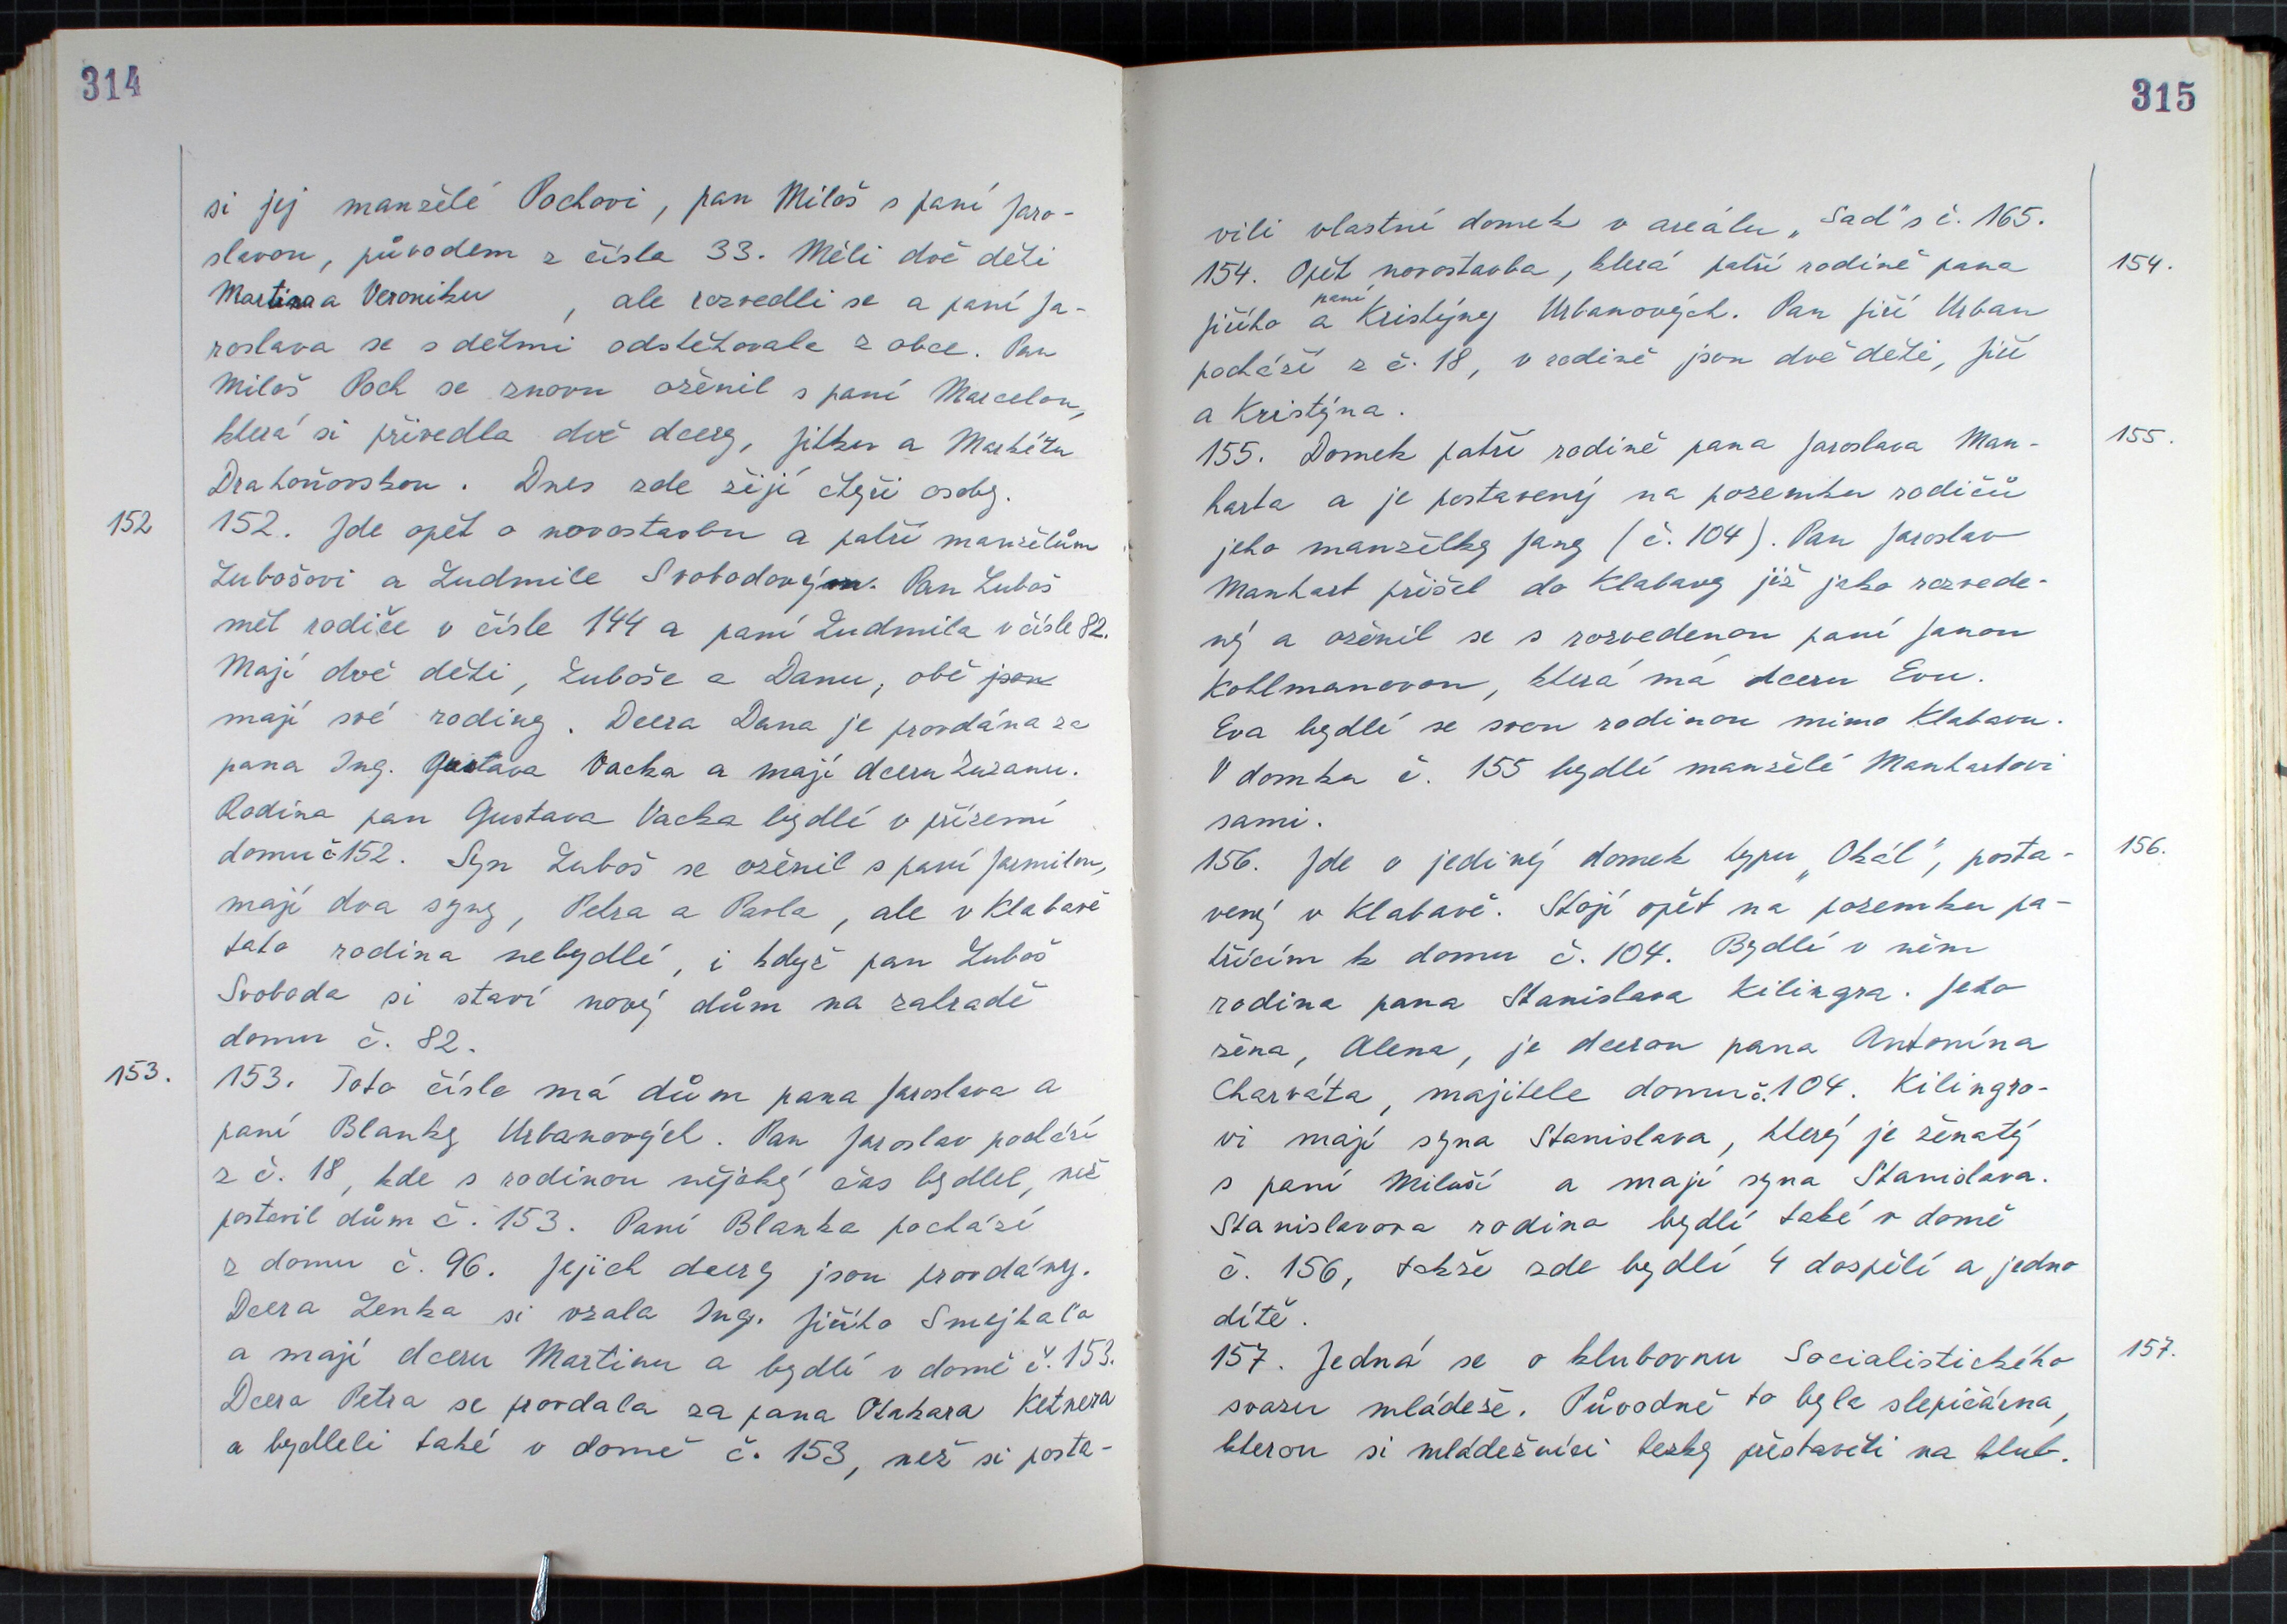 314
si jej manželé Pochovi, pan Miloš s paní Jaro-
slavou, původem z čísla 33. Měli dvě děti
Martina a Veroniku, ale rozvedli se a paní Ja-
roslava se s dětmi odstěhovala z obce. Pan
Miloš Poch se znovu oženil s paní Marcelou,
která si přivedla dvě dcery, Jitku a Markétu
Drahoňovskou. Dnes zde žijí čtyři osoby.
152
152. Jde opět o novostavbu a patří manželům
Lubošovi a Ludmile Svobodovým. Pan Luboš
měl rodiče v čísle 144 a paní Ludmila v čísle 82.
Mají dvě děti, Luboše a Danu, obě jsou
mají své rodiny. Dcera Dana je provdána za
pana Ing. Gustava Vacka a mají dceru Zuzanu.
Rodina pan Gustava Vacka bydlí v přízemí
domu č 152. Syn Luboš se oženil s paní Jarmilou,
mají dva syny, Petra a Pavla, ale v Klabavě
tato rodina nebydlí, i když pan Luboš
Svoboda si staví nový dům na zahradě
domu č. 82.
153.
153. Toto číslo má dům pana Jaroslava a
paní Blanky Urbanových. Pan Jaroslav pochází
z č. 18, kde s rodinou nějaký čas bydlel, než
postavil dům č. 153. Paní Blanka pochází
z domu č. 96. Jejich dcery jsou provdány.
Dcera Lenka si vzala Ing. Jiřího Smejkala
a mají dceru Martinu a bydlí v domě č. 153.
Dcera Petra se provdala za pana Otakara Ketnera
a bydleli také v domě č. 153, než si posta-
315
vili vlastní domek v areálu „Sad" s č. 165.
154. Opět novostavba, která patří rodině pana
154.
Jiřího a paní Kristýny Urbanových. Pan Jiří Urban
pochází z č. 18, v rodině jsou dvě děti, Jiří
a Kristýna.
155. Domek patří rodině pana Jaroslava Man-
155.
harta a je postavený na pozemku rodičů
jeho manželky Jany (č. 104). Pan Jaroslav
Manhart přišel do Klabavy již jako rozvede-
ný a oženil se s rozvedenou paní Janou
Kohlmanovou, která má dceru Evu.
Eva bydlí se svou rodinou mimo Klabavu.
V domku č. 155 bydlí manželé Manhartovi
sami.
156. Jde o jediný domek typu „Okál", posta-
156.
vený v Klabavě. Stojí opět na pozemku pa-
třícím k domu č. 104. Bydlí v něm
rodina pana Stanislava Kilingra. Jeho
žena, Alena, je dcerou pana Antonína
Charváta, majitele domu č. 104. Kilingro-
vi mají syna Stanislava, který je ženatý
s paní Miluší a mají syna Stanislava.
Stanislavova rodina bydlí také v domě
č. 156, takže zde bydlí 4 dospělí a jedno
dítě.
157. Jedná se o klubovnu Socialistického
157.
svazu mládeže. Původně to byla slepičárna,
kterou si mládežníci hezky přistavěli na klub.